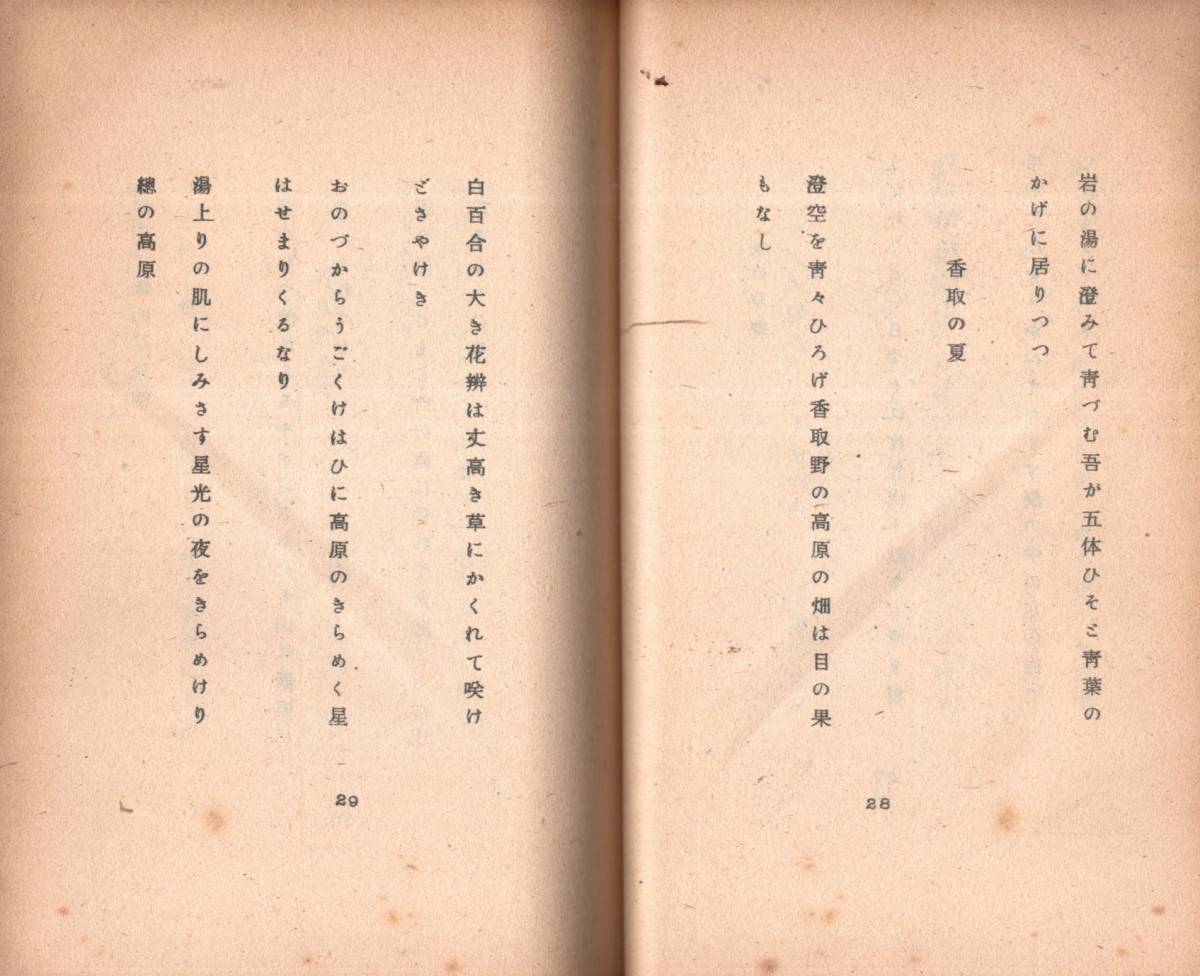 岩の湯に澄みて靑づむ吾が五体ひそと靑葉の
かげに居りつつ
香取の夏
澄空を靑々ひろげ香取野の高原の畑は目の果
もなし
28
白百合の大き花辨は丈高き草にかくれて咲け
どさやけき
おのづからうごくけはひに高原のきらめく星
はせまりくるなり
湯上りの肌にしみさす星光の夜をきらめけり
總の高原
29